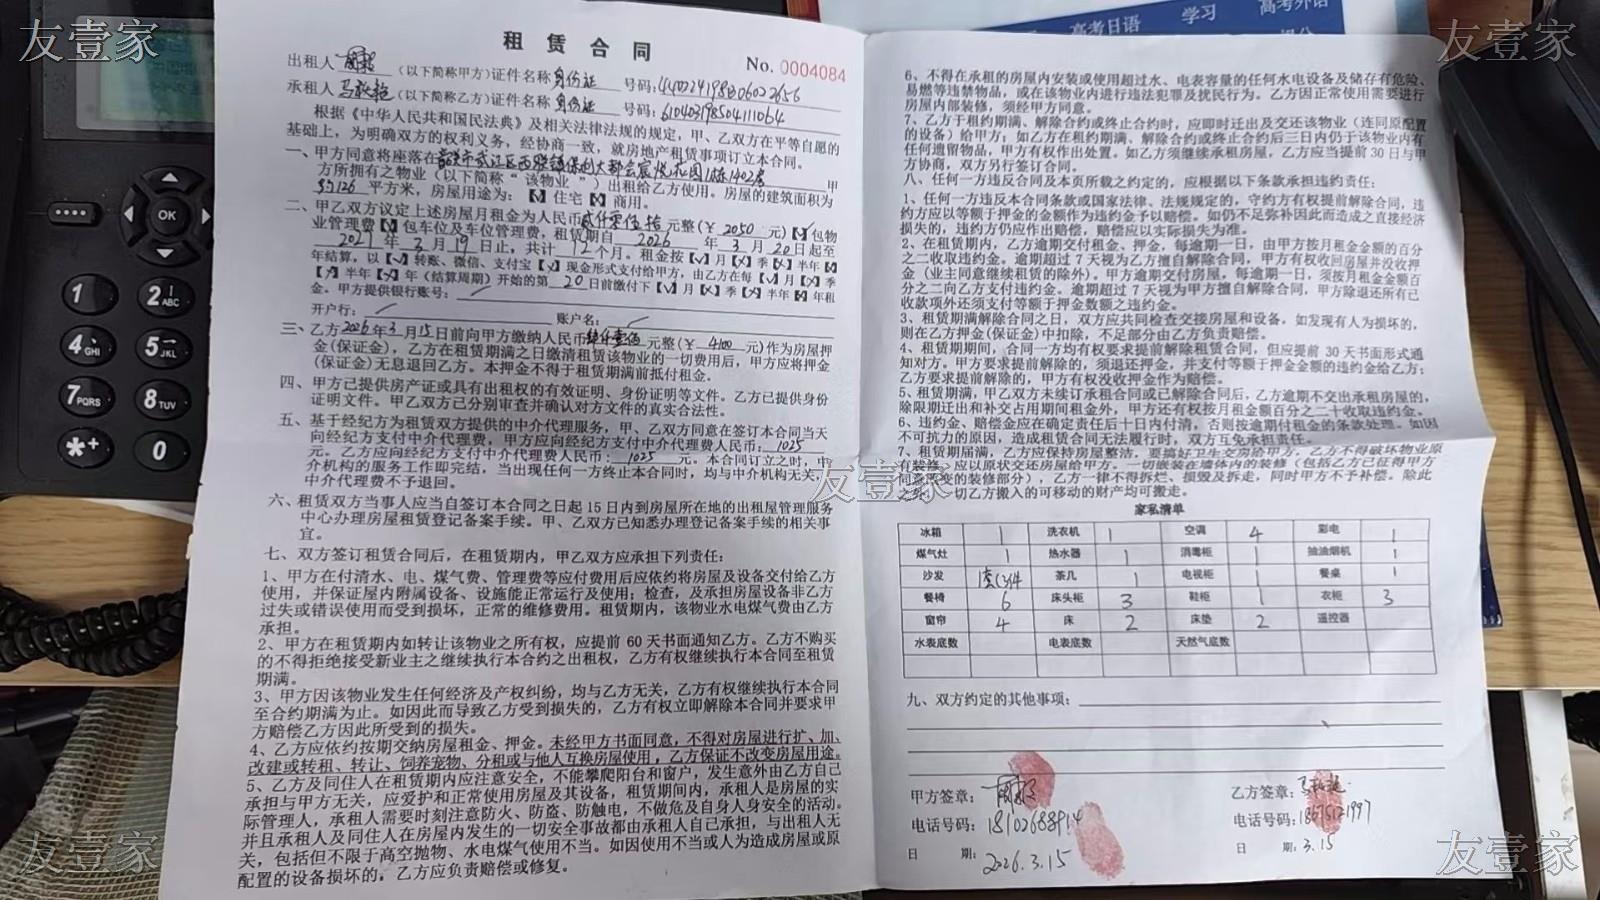 友壹家
友壹家
高考日语 学习 高考外语
租 赁 合 同
No. 0004084
出租人 （以下简称甲方）证件名称 身份证 号码:
承租人 （以下简称乙方）证件名称 身份证 号码: 610403198504111064
根据《中华人民共和国民法典》及相关法律法规的规定，甲、乙双方在平等自愿的
基础上，为明确双方的权利义务，经协商一致，就房地产租赁事项订立本合同。
一、甲方同意将座落在 1栋1402号 甲
方所拥有之物业（以下简称“该物业”）出租给乙方使用。房屋的建筑面积为
约126 平方米，房屋用途为： 住宅 商用。
二、甲乙双方议定上述房屋月租金为人民币 贰仟零伍拾 元整（￥ 2050 元） 包物
业管理费 包车位及车位管理费，租赁期自 2026 年 3 月 20 日起至
2027 年 3 月 19 日止，共计 12 个月。租金按【√】月【×】季【×】半年
年结算，以【√】转账、微信、支付宝【×】现金形式支付给甲方，由乙方在每【√】月【×】季
【×】半年【×】年（结算周期）开始的第 20 日前缴付下【√】月【×】季【×】半年 年租
金。甲方提供银行账号：
开户行： 账户名：
三、乙方 2026 年 3 月 15 日前向甲方缴纳人民币 肆仟壹佰 元整（￥ 4100 元）作为房屋押
金(保证金)，乙方在租赁期满之日缴清租赁该物业的一切费用后，甲方应将押金
(保证金)无息退回乙方。本押金不得于租赁期满前抵付租金。
四、甲方已提供房产证或具有出租权的有效证明、身份证明等文件。乙方已提供身份
证明文件。甲乙双方已分别审查并确认对方文件的真实合法性。
五、基于经纪方为租赁双方提供的中介代理服务，甲、乙双方同意在签订本合同当天
向经纪方支付中介代理费。甲方应向经纪方支付中介代理费人民币： 1025
元。乙方应向经纪方支付中介代理费人民币： 1025 元。本合同订立之时，中
介机构的服务工作即完结，当出现任何一方终止本合同时，均与中介机构无关，
中介代理费不予退回。
六、租赁双方当事人应当自签订本合同之日起 15 日内到房屋所在地的出租屋管理服务
中心办理房屋租赁登记备案手续。甲、乙双方已知悉办理登记备案手续的相关事
宜。
七、双方签订租赁合同后，在租赁期内，甲乙双方应承担下列责任：
1、甲方在付清水、电、煤气费、管理费等应付费用后应依约将房屋及设备交付给乙方
使用，并保证屋内附属设备、设施能正常运行及使用；检查，及承担房屋设备非乙方
过失或错误使用而受到损坏，正常的维修费用。租赁期内，该物业水电煤气费由乙方
承担。
2、甲方在租赁期内如转让该物业之所有权，应提前 60 天书面通知乙方。乙方不购买
的不得拒绝接受新业主之继续执行本合约之出租权，乙方有权继续执行本合同至租赁
期满。
3、甲方因该物业发生任何经济及产权纠纷，均与乙方无关，乙方有权继续执行本合同
至合约期满为止。如因此而导致乙方受到损失的，乙方有权立即解除本合同并要求甲
方赔偿乙方因此所受到的损失。
4、乙方应依约按期交纳房屋租金、押金。未经甲方书面同意，不得对房屋进行扩、加、
改建或转租、转让、饲养宠物、分租或与他人互换房屋使用，乙方保证不改变房屋用途。
5、乙方及同住人在租赁期内应注意安全，不能攀爬阳台和窗户，发生意外由乙方自己
承担与甲方无关，应爱护和正常使用房屋及其设备，租赁期间内，承租人是房屋的实
际管理人，承租人需要时刻注意防火、防盗、防触电，不做危及自身人身安全的活动。
并且承租人及同住人在房屋内发生的一切安全事故都由承租人自己承担，与出租人无
关，包括但不限于高空抛物、水电煤气使用不当。如因使用不当或人为造成房屋或原
配置的设备损坏的，乙方应负责赔偿或修复。
6、不得在承租的房屋内安装或使用超过水、电表容量的任何水电设备及储存有危险、
易燃等违禁物品，或在该物业内进行违法犯罪及扰民行为。乙方因正常使用需要进行
房屋内部装修，须经甲方同意。
7、乙方于租约期满、解除合约或终止合约时，应即时迁出及交还该物业（连同原配置
的设备）给甲方；如乙方在租约期满、解除合约或终止合约后三日内仍于该物业内有
任何遗留物品，甲方有权作出处置。如乙方须继续承租房屋，乙方应当提前 30 日与甲
方协商，双方另行签订合同。
八、任何一方违反合同及本页所载之约定的，应根据以下条款承担违约责任：
1、任何一方违反本合同条款或国家法律、法规规定的，守约方有权提前解除合同，违
约方应以等额于押金的金额作为违约金予以赔偿。如仍不足弥补因此而造成之直接经济
损失的，违约方仍应作出赔偿，赔偿应以实际损失为准。
2、在租赁期内，乙方逾期交付租金、押金，每逾期一日，由甲方按月租金金额的百分
之二收取违约金。逾期超过 7 天视为乙方擅自解除合同，甲方有权收回房屋并没收押
金（业主同意继续租赁的除外）。甲方逾期交付房屋，每逾期一日，须按月租金金额百
分之二向乙方支付违约金。逾期超过 7 天视为甲方擅自解除合同，甲方除退还所有已
收款项外还须支付等额于押金数额之违约金。
3、租赁期满解除合同之日，双方应共同检查交接房屋和设备，如发现有人为损坏的，
则在乙方押金(保证金)中扣除，不足部分由乙方负责赔偿。
4、租赁期期间，合同一方均有权要求提前解除租赁合同，但应提前 30 天书面形式通
知对方。甲方要求提前解除的，须退还押金，并支付等额于押金金额的违约金给乙方；
乙方要求提前解除的，甲方有权没收押金作为赔偿。
5、租赁期满，甲乙双方未续订承租合同或已解除合同后，乙方逾期不交出承租房屋的，
除限期迁出和补交占用期间租金外，甲方还有权按月租金额百分之二十收取违约金。
6、违约金、赔偿金应在确定责任后十日内付清，否则按逾期付租金的条款处理。如因
不可抗力的原因，造成租赁合同无法履行时，双方互免承担责任。
7、租赁期届满，乙方应保持房屋整洁，要搞好卫生交房给甲方。乙方不得破坏物业原
有装修，应以原状交还房屋给甲方。一切嵌装在墙体内的装修（包括乙方已征得甲方
同意改变的装修部分），乙方一律不得拆烂、损毁及拆走，同时甲方不予补偿。除此
之外，一切乙方搬入的可移动的财产均可搬走。
友壹家
家私清单
冰箱 1 洗衣机 1 空调 4 彩电 1
煤气灶 1 热水器 1 消毒柜 1 抽油烟机 1
沙发 茶几 1 电视柜 1 餐桌 1
餐椅 6 床头柜 3 鞋柜 1 衣柜 3
窗帘 4 床 2 床垫 2 遥控器
水表底数 电表底数 天然气底数
九、双方约定的其他事项：
甲方签章： 乙方签章：
电话号码： 18102688914 电话号码：
日 期： 2026.3.15 日 期： 3.15
OK
1 2 ABC
4 GHI 5 JKL
7 PQRS 8 TUV
*+ 0
友壹家
友壹家